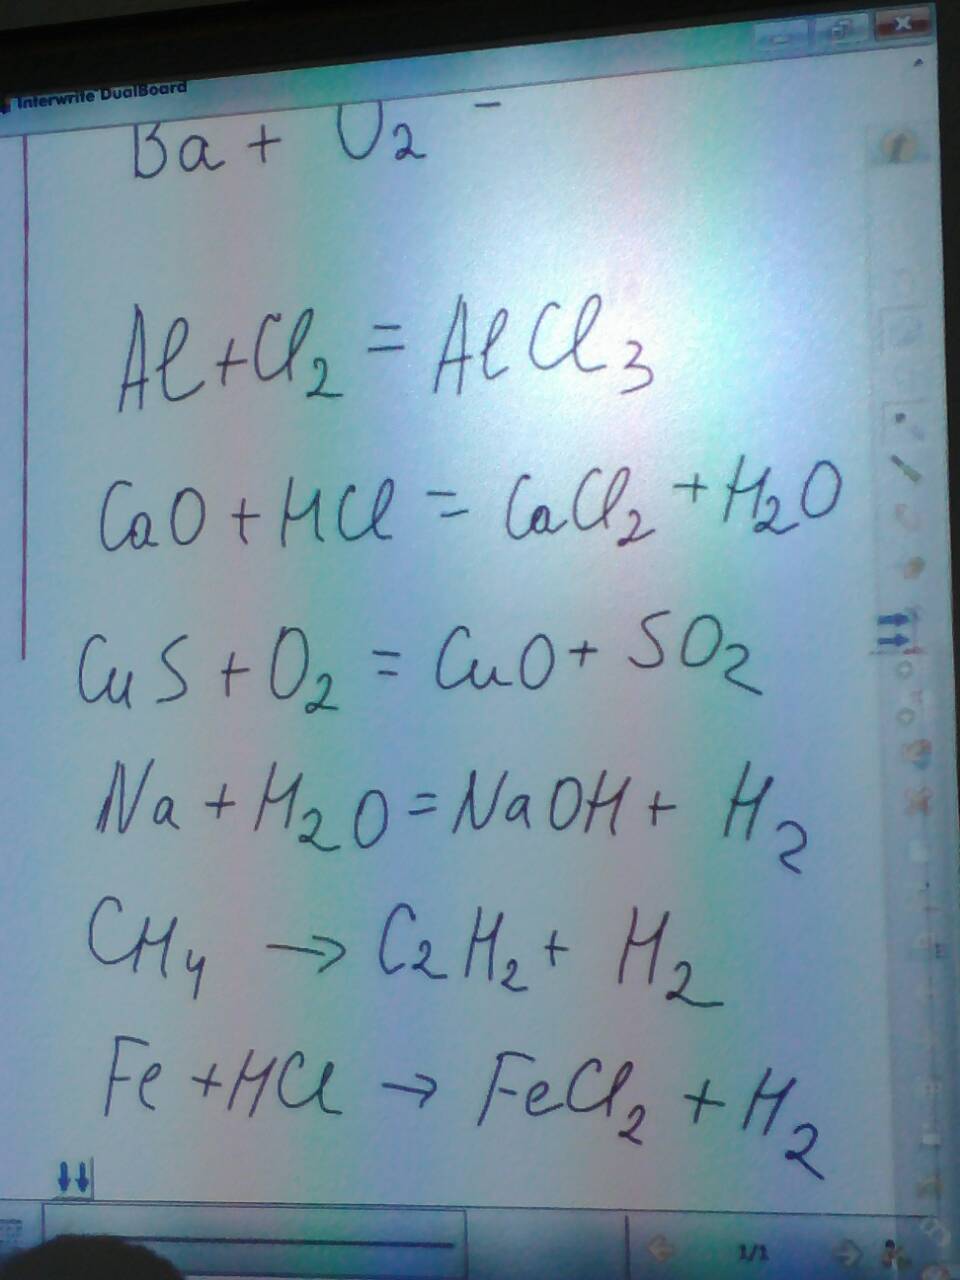 Interwrite DualBoard
Ba + O2 -
Al + Cl2 = AlCl3
CaO + HCl = CaCl2 + H2O
CuS + O2 = CuO + SO2
Na + H2O = NaOH + H2
CH4 → C2H2 + H2
Fe + HCl → FeCl2 + H2
1/1